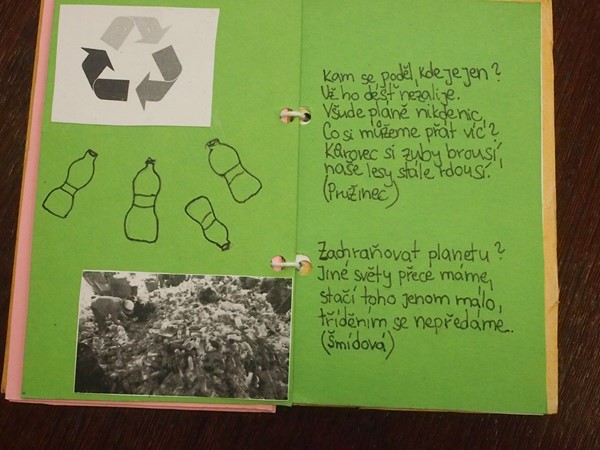 Kam se poděl, kde je jen?
Už ho déšť nezalije.
Všude pláně nikdenic,
Co si můžeme přát víc?
Kůrovec si zuby brousí,
naše lesy stále rdousí.
(Pružinec)
Zachraňovat planetu?
Jiné světy přece máme,
stačí toho jenom málo,
tříděním se nepředáme.
(Šmídová)